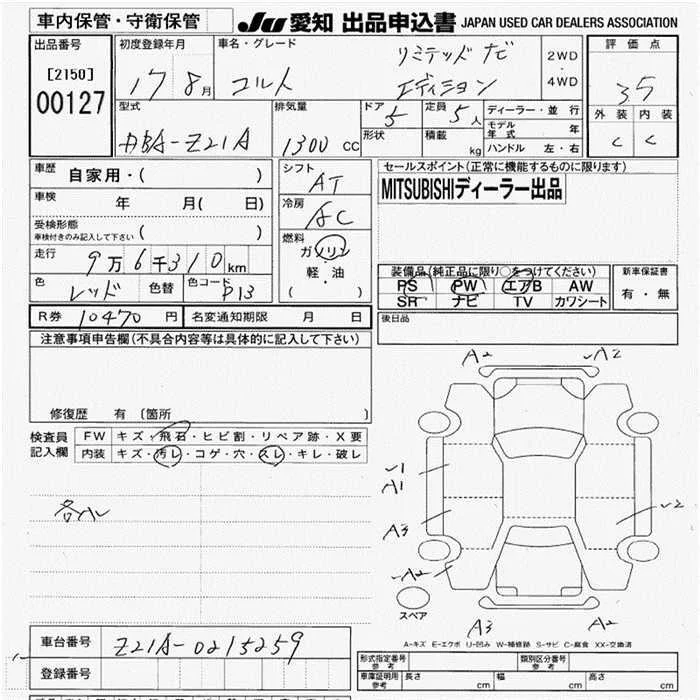 車内保管・守衛保管 JU 愛知 出品申込書 JAPAN USED CAR DEALERS ASSOCIATION
出品番号 初度登録年月 車名・グレード 評価点
[2150] 17 8月 コルト リミテッド ナビ 2WD
00127 エディション 4WD 3.5
型式 排気量 ドア 5 定員 5人 ディーラー・並行 外装 内装
DBA-Z21A 1300cc 形状 積載 kg モデル年式 年 C C
ハンドル 左・右
車歴 自家用・( ) シフト AT セールスポイント(正常に機能するものに限ります)
車検 年 月( 日) 冷房 AC MITSUBISHIディーラー出品
受検形態
車検付きのみ記入して下さい ( ) 燃料 ガソリン
走行 9万6千310km 軽・油 装備品(純正品に限り○をつけてください) 新車保証書
色 レッド 色替 色コード P13 ( ) PS PW エアB AW 有・無
SR ナビ TV カワシート
R券 10470円 名変通知期限 月 日 後日品
注意事項申告欄(不具合内容等は具体的に記入して下さい)
A2 A2
修復歴 有 〔箇所 〕
検査員 FW キズ・飛石・ヒビ割・リペア跡・X要
記入欄 内装 キズ・汚レ・コゲ・穴・スレ・キレ・破レ
A1
A3
A2
スペア
A3 A2
A-キズ E-エクボ U-凹み W-補修跡 S-サビ C-腐食 XX-交換済
車台番号 Z21A-0215259
登録番号
形式指定番号 参考 類別区分番号 参考
車庫証明用 参考 長さ cm 幅 cm 高さ cm